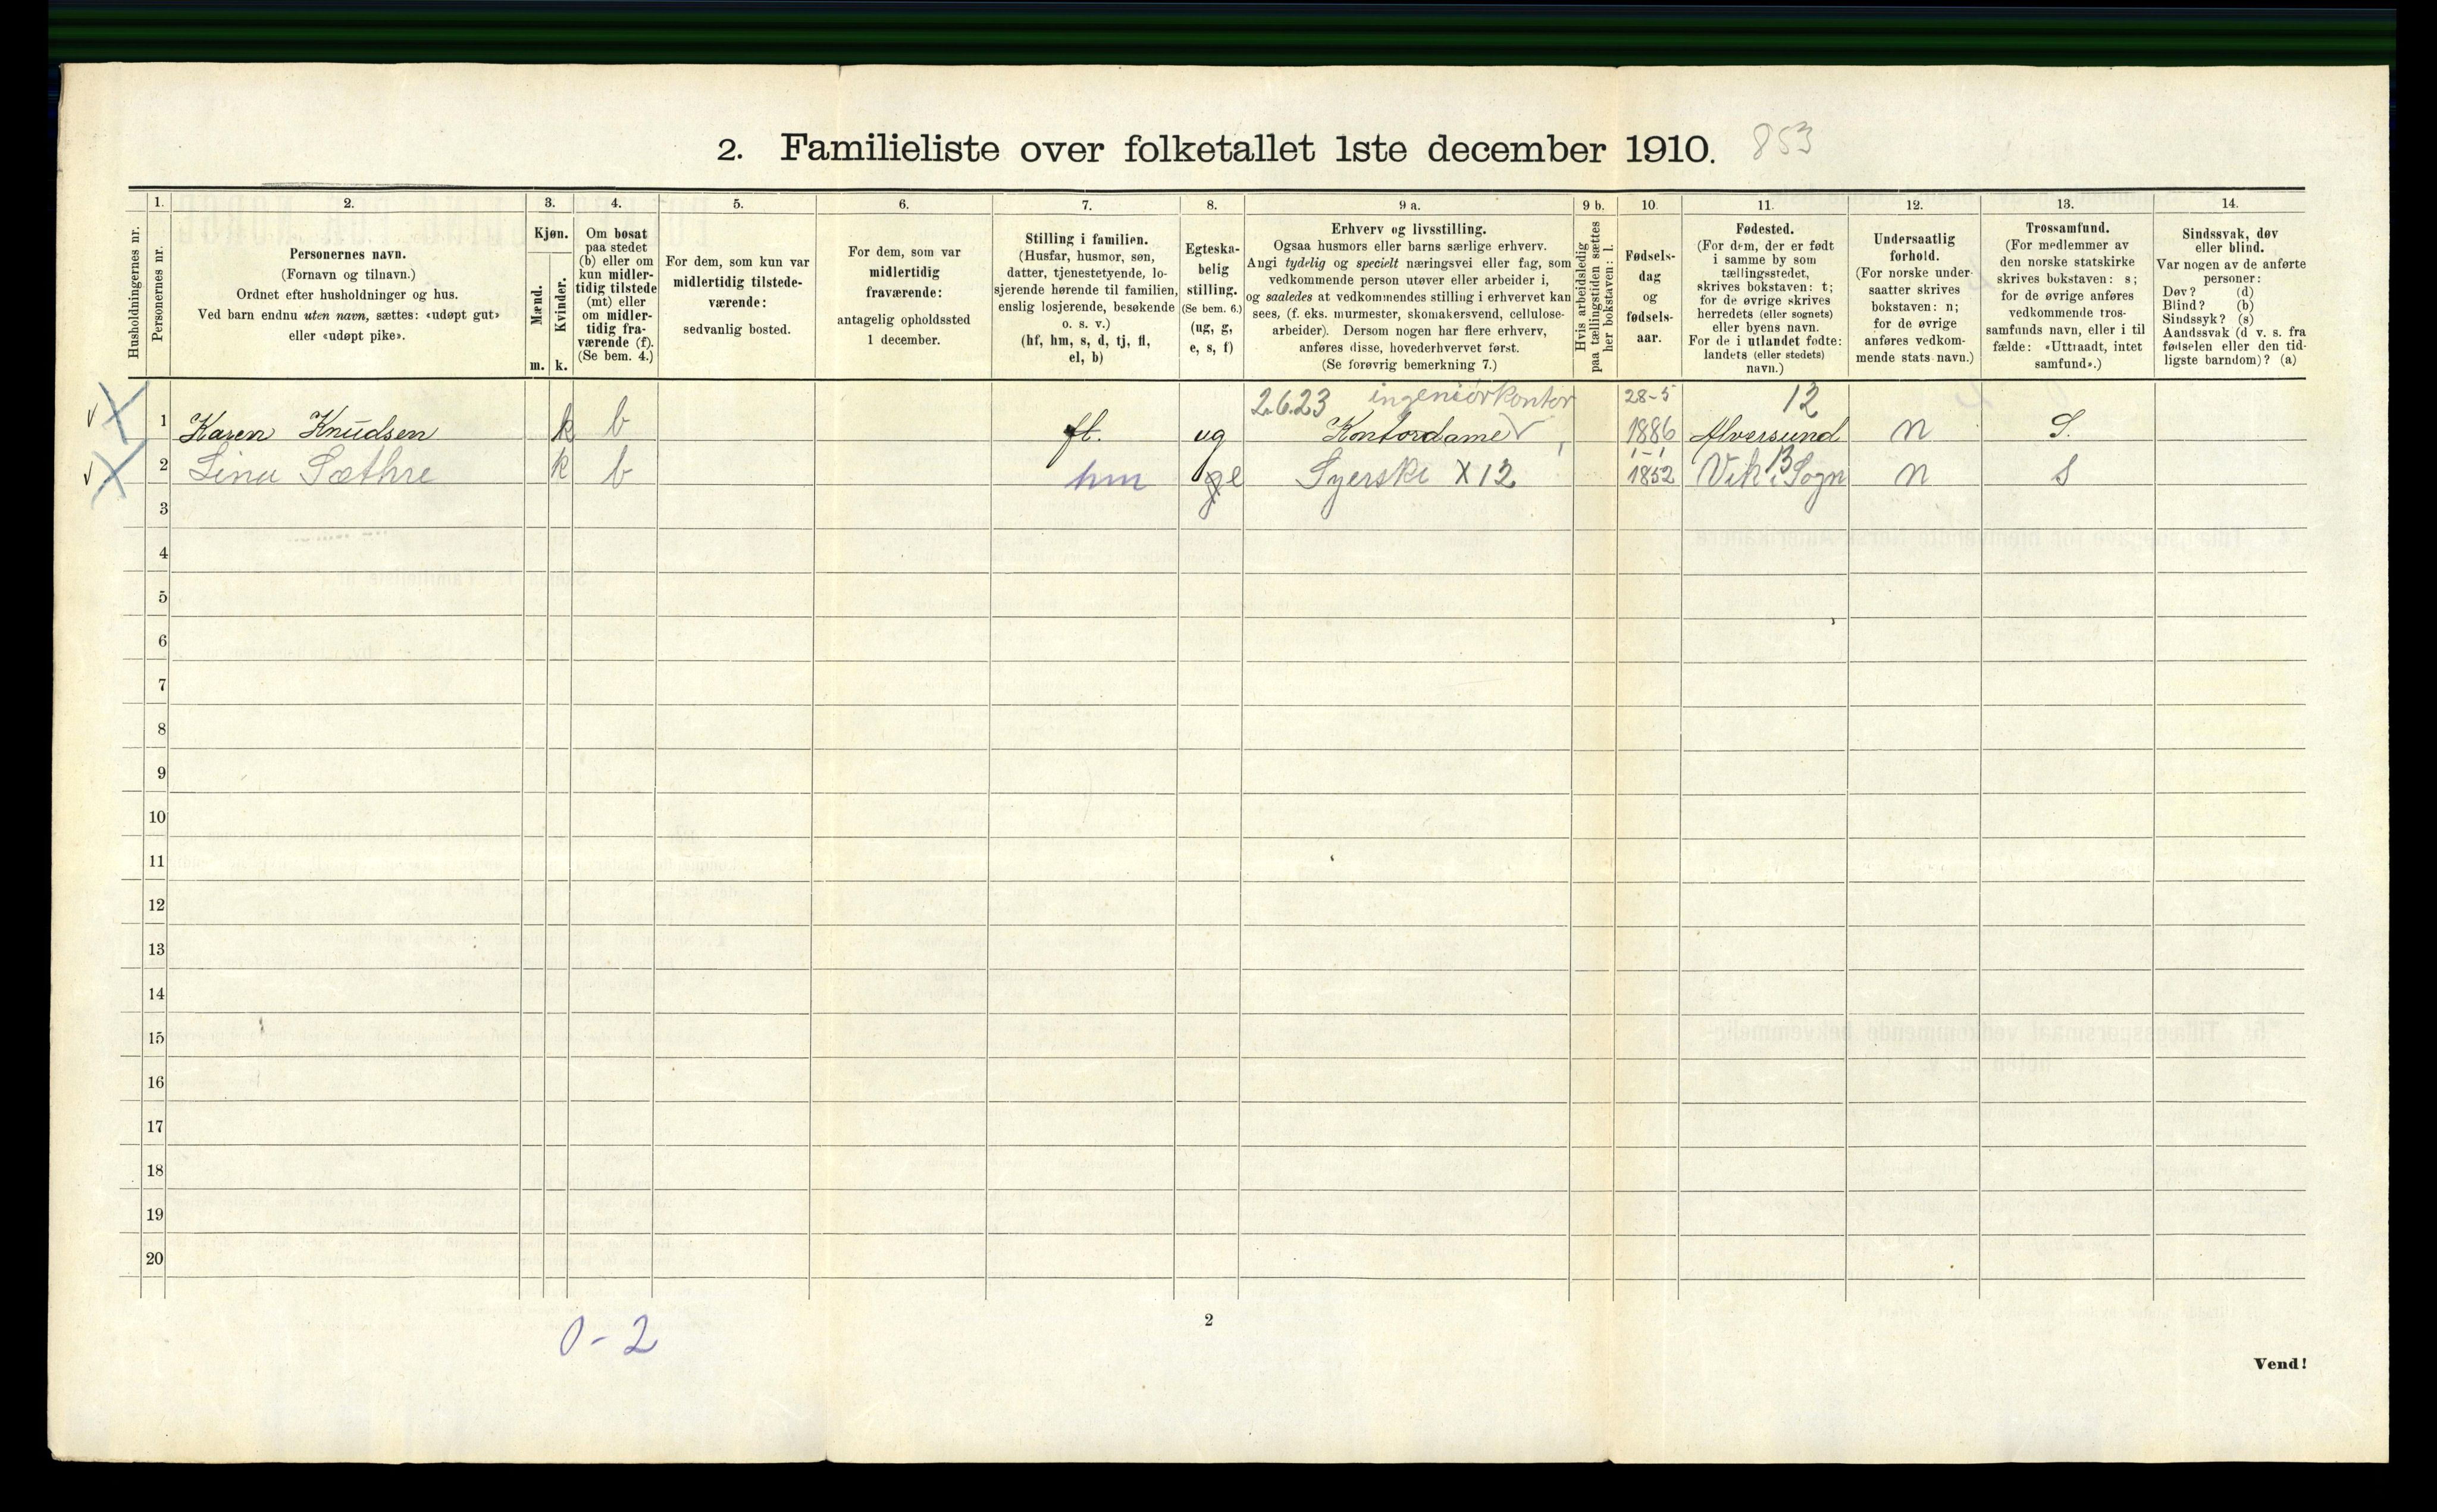 2. Familieliste over folketallet 1ste december 1910. 853
Husholdningernes nr.
1.
Personernes nr.
2.
Personernes navn.
(Fornavn og tilnavn.)
Ordnet efter husholdninger og hus.
Ved barn endnu uten navn, sættes: «udøpt gut»
eller «udøpt pike».
3.
Kjøn.
Mænd.
Kvinder.
m. k.
4.
Om bosat
paa stedet
(b) eller om
kun midler-
tidig tilstede
(mt) eller
om midler-
tidig fra-
værende (f).
(Se bem. 4.)
5.
For dem, som kun var
midlertidig tilstede-
værende:
sedvanlig bosted.
6.
For dem, som var
midlertidig
fraværende:
antagelig opholdssted
1 december.
7.
Stilling i familien.
(Husfar, husmor, søn,
datter, tjenestetyende, lo-
sjerende hørende til familien,
enslig losjerende, besøkende
o. s. v.)
(hf, hm, s, d, tj, fl,
el, b)
8.
Egteska-
belig
stilling.
(Se bem. 6.)
(ug, g,
e, s, f)
9 a.
Erhverv og livsstilling.
Ogsaa husmors eller barns særlige erhverv.
Angi tydelig og specielt næringsvei eller fag, som
vedkommende person utøver eller arbeider i,
og saaledes at vedkommendes stilling i erhvervet kan
sees, (f. eks. murmester, skomakersvend, cellulose-
arbeider). Dersom nogen har flere erhverv,
anføres disse, hovederhvervet først.
(Se forøvrig bemerkning 7.)
9 b.
Hvis arbeidsledig
paa tællingstiden sættes
her bokstaven: l.
10.
Fødsels-
dag
og
fødsels-
aar.
11.
Fødested.
(For dem, der er født
i samme by som
tællingsstedet,
skrives bokstaven: t;
for de øvrige skrives
herredets (eller sognets)
eller byens navn.
For de i utlandet fødte:
landets (eller stedets)
navn.)
12.
Undersaatlig
forhold.
(For norske under-
saatter skrives
bokstaven: n;
for de øvrige
anføres vedkom-
mende stats navn.)
13.
Trossamfund.
(For medlemmer av
den norske statskirke
skrives bokstaven: s;
for de øvrige anføres
vedkommende tros-
samfunds navn, eller i til
fælde: «Uttraadt, intet
samfund».)
14.
Sindssvak, døv
eller blind.
Var nogen av de anførte
personer:
Døv? (d)
Blind? (b)
Sindssyk? (s)
Aandssvak (d v. s. fra
fødselen eller den tid-
ligste barndom)? (a)
2.6.23 ingeniørkontor 28-5 12
1 Karen Knudsen k b fl. ug Kontordame 1886 Alversund n S.
1-1 13
2 Lina Sæthre k b hm g e Syerske X 12 1852 Vik i Sogn n S
3
4
5
6
7
8
9
10
11
12
13
14
15
16
17
18
19
20
0-2
2
Vend!